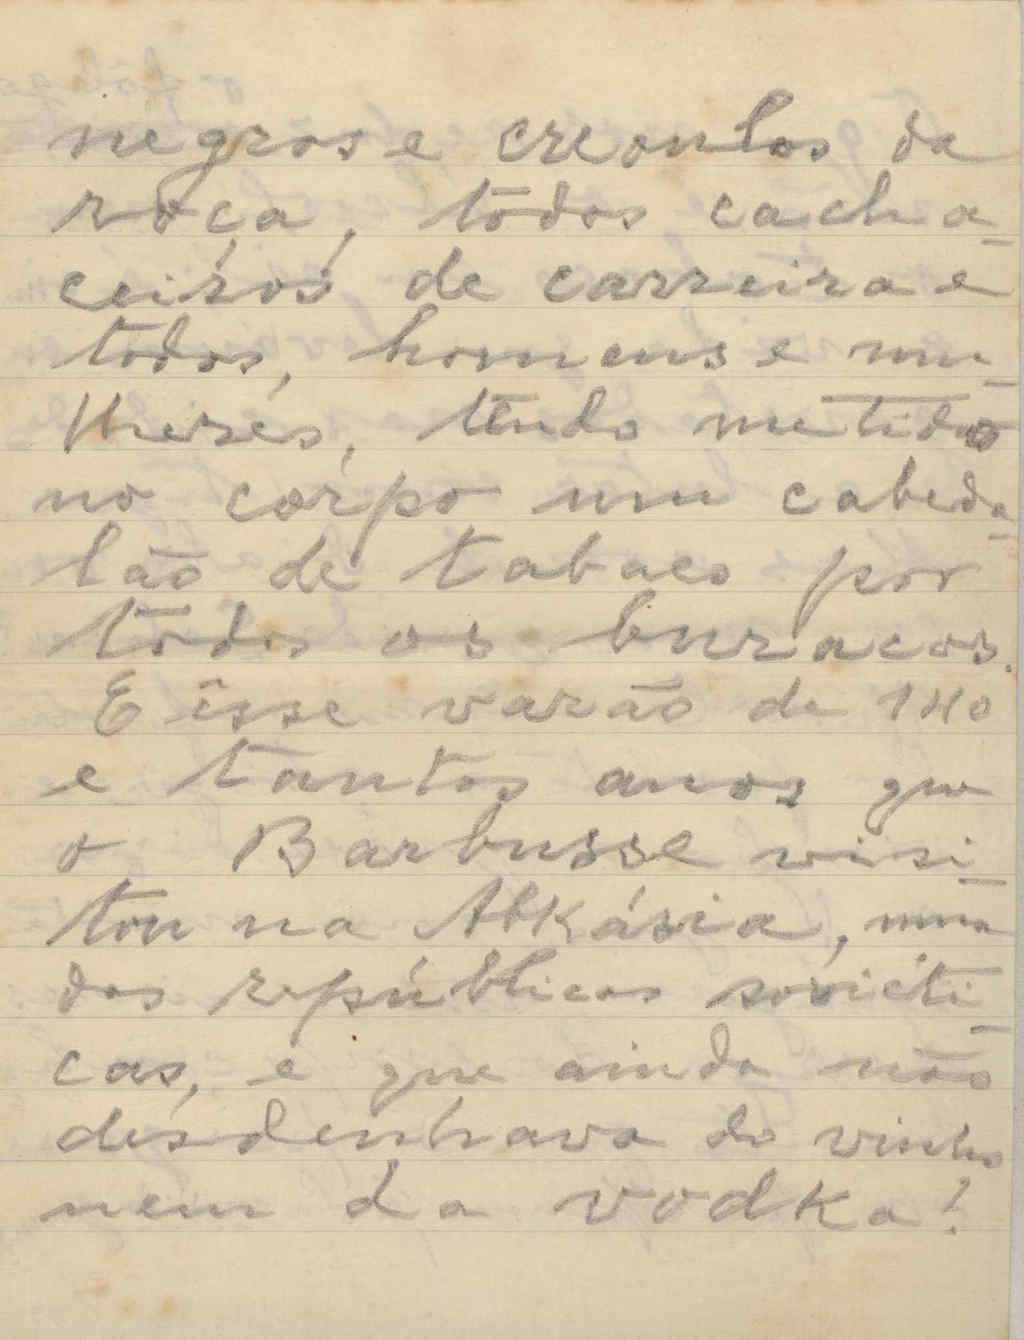 negros e creoulos da
roça, todos cacha-
ceiros de carreira e
todos, homens e mu-
lheres, tendo metido
no corpo um cabeda-
lão de tabaco por
todos os buracos.
E êsse varão de 140
e tantos anos que
o Barbusse visi-
tou na Abkásia, numa
das repúblicas soviéti-
cas, e que ainda não
desdenhava do vinho
nem da vodka!